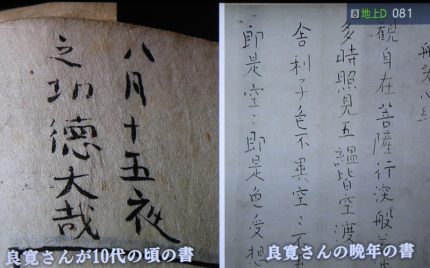 地上D 081
八月十五夜
之功徳大哉
良寛さんが10代の頃の書
観自在菩薩行深般若
多時照見五緼皆空渡
舎利子色不異空〻不
即是空〻即是色受想
良寛さんの晩年の書